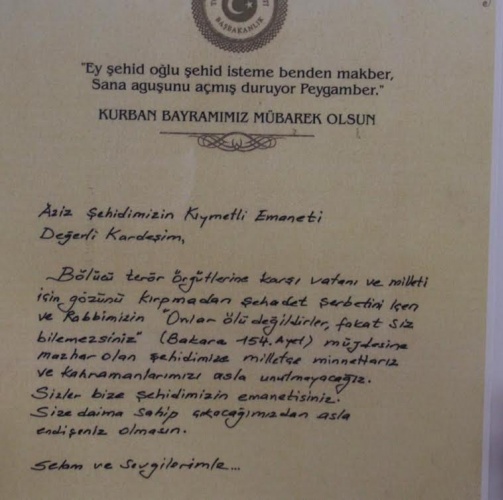 BAŞBAKANLIK
"Ey şehid oğlu şehid isteme benden makber,
Sana aguşunu açmış duruyor Peygamber."
KURBAN BAYRAMIMIZ MÜBAREK OLSUN
Aziz Şehidimizin Kıymetli Emaneti
Değerli Kardeşim,
Bölücü terör örgütlerine karşı vatanı ve milleti
için gözünü kırpmadan şehadet şerbetini içen
ve Rabbimizin "Onlar ölü değildirler, fakat siz
bilemezsiniz" (Bakara 154. Ayet) müjdesine
mazhar olan şehidimize milletçe minnettarız
ve kahramanlarımızı asla unutmayacağız.
Sizler bize şehidimizin emanetisiniz.
Size daima sahip çıkacağımızdan asla
endişeniz olmasın.
Selam ve Sevgilerimle...